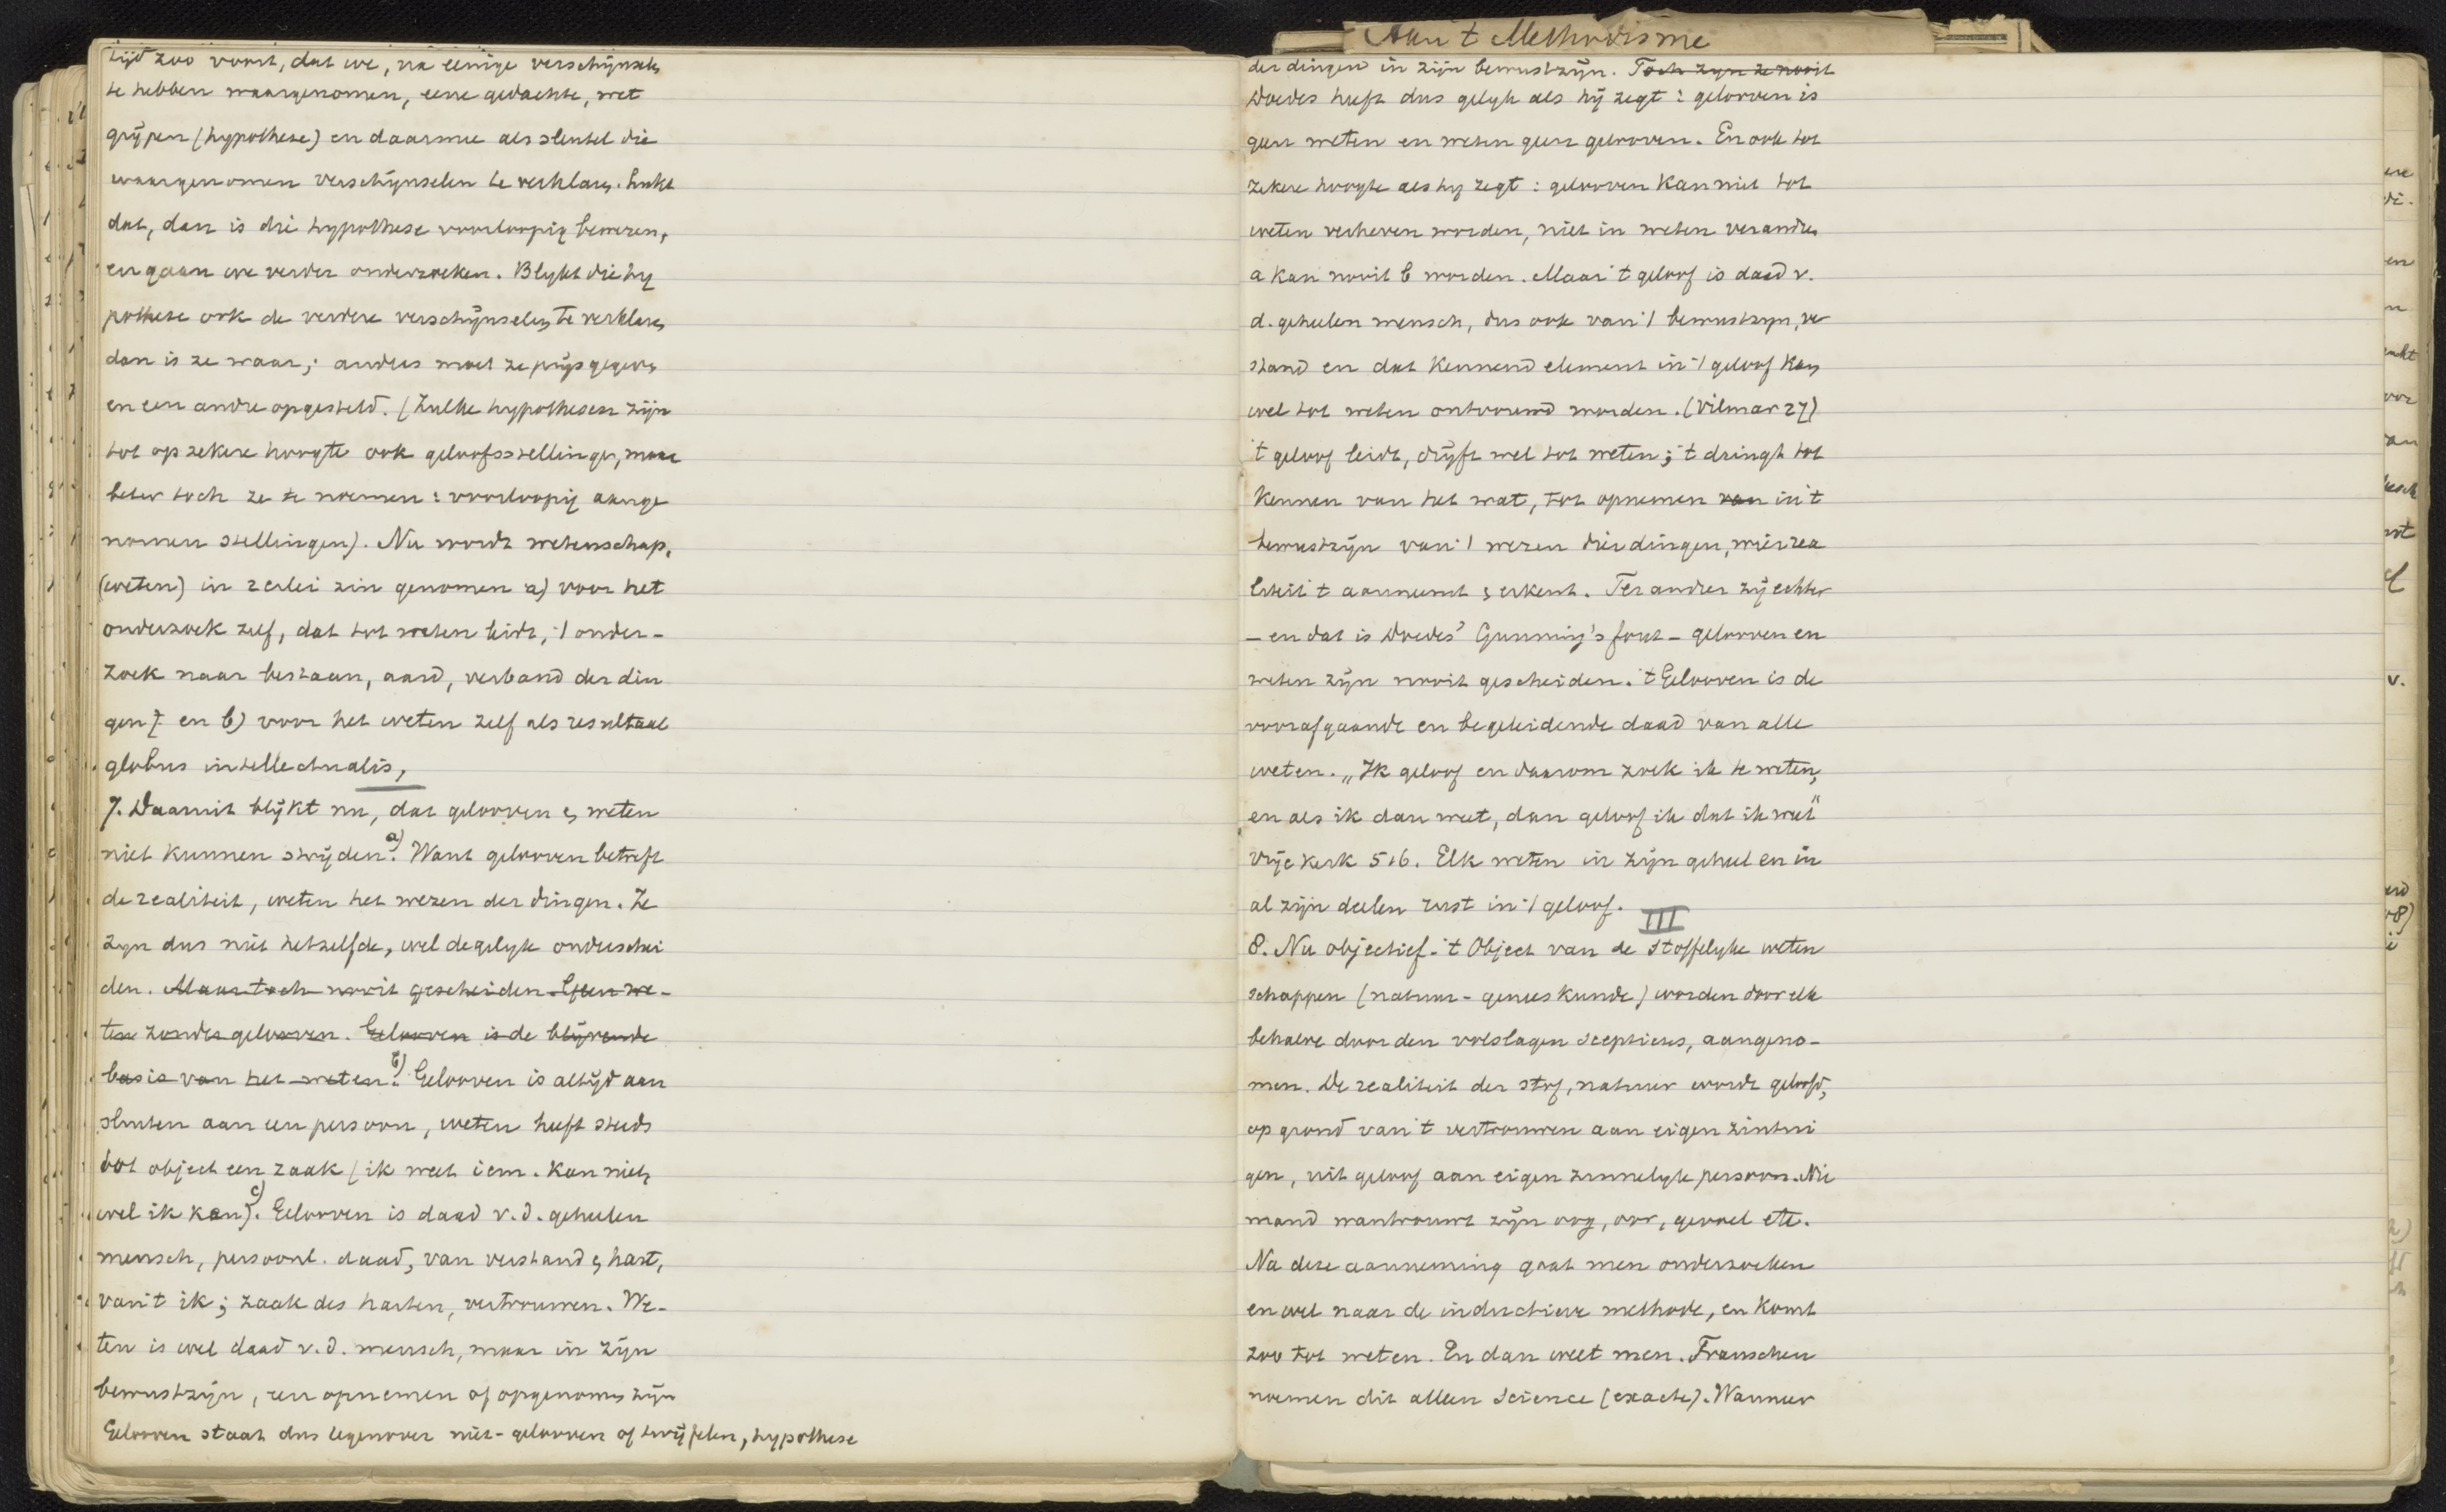 tijd zoo voort, dat we, na eenige verschijnselen
te hebben waargenomen, eene gedachte, wet
grijpen (hypothese) en daarmee als sleutel die
waargenomen verschijnselen te verklaren. Lukt
dat, dan is die hypothese voorloopig bewezen,
en gaan we verder onderzoeken. Blykt die hy
pothese ook de verdere verschijnselen te verklaren
dan is ze waar; anders moet ze prijsgegeven
en een andre opgesteld. (Zulke hypothesen zijn
tot op zekere hoogte ook geloofsstellingen, maar
beter toch ze te noemen: voorloopig aange
nomen stellingen). Nu wordt wetenschap,
(weten) in 2erlei zin genomen a) voor het
onderzoek zelf, dat tot weten leidt, 't onder-
zoek naar bestaan, aard, verband der din
gen en b) voor het weten zelf als resultaat
globus intellectualis,
7. Daaruit blijkt nu, dat gelooven en weten
niet kunnen strijden. a) Want gelooven betreft
de realiteit, weten het wezen der dingen. Ze
zyn dus niet hetzelfde, wel degelyk onderschei
den. Maar toch nooit gescheiden. Geen we-
ten zonder gelooven. Gelooven is de blijvende
basis van het weten. b) Gelooven is altijd aan
sluiten aan een persoon, weten heeft steeds
tot object een zaak (ik weet iem. kan niet,
wel ik ken). c) Gelooven is daad v.d. geheelen
mensch, persoonl. daad, van verstand en hart,
van 't ik; zaak des harten, vertrouwen. We-
ten is wel daad v.d. mensch, maar in zijn
bewustzijn, een opnemen of opgenomen zijn
Gelooven staat dus tegenover niet-gelooven of twijfelen, hypothese
Aan 't Methodisme
der dingen in zijn bewustzijn. Toch zyn ze nooit
Doedes heeft dus gelyk als hij zegt: gelooven is
geen weten en weten geen gelooven. En ook tot
zekere hoogte als hy zegt: gelooven kan niet tot
weten verheven worden, niet in weten veranderen
a kan nooit b worden. Maar 't geloof is daad v.
d. geheelen mensch, dus ook van 't bewustzyn, ver
stand en dat kennend element in 't geloof kan
wel tot weten ontvouwd worden. (Vilmar 27)
't geloof leidt, drijft wel tot weten; 't dringt tot
kennen van het wat, tot opnemen van in 't
bewustzijn van 't wezen dier dingen, wier rea
liteit 't aanneemt en erkent. Ter andrer zij echter
- en dat is Doedes' Gunning's fout - gelooven en
weten zijn nooit gescheiden. 't Gelooven is de
voorafgaande en begeleidende daad van alle
weten. „Ik geloof en daarom zoek ik te weten,
en als ik dan weet, dan geloof ik dat ik weet"
Vrije Kerk 516. Elk weten in zijn geheel en in
al zijn deelen rust in 't geloof.
III
8. Nu objectief. 't Object van de stoffelyke weten
schappen (natuur- geneeskunde) worden door elk
behalve door den volslagen scepticus, aangeno-
men. De realiteit der stof, natuur wordt geloofd,
op grond van 't vertrouwen aan eigen zintui
gen, uit geloof aan eigen zinnelyke persoon. Nie
mand wantrouwt zijn oog, oor, gevoel etc.
Na deze aanneming gaat men onderzoeken
en wel naar de inductieve methode, en komt
zoo tot weten. En dan weet men. Franschen
noemen dit alleen science (exacte). Wanneer